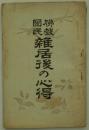 國民
雜居後の心得